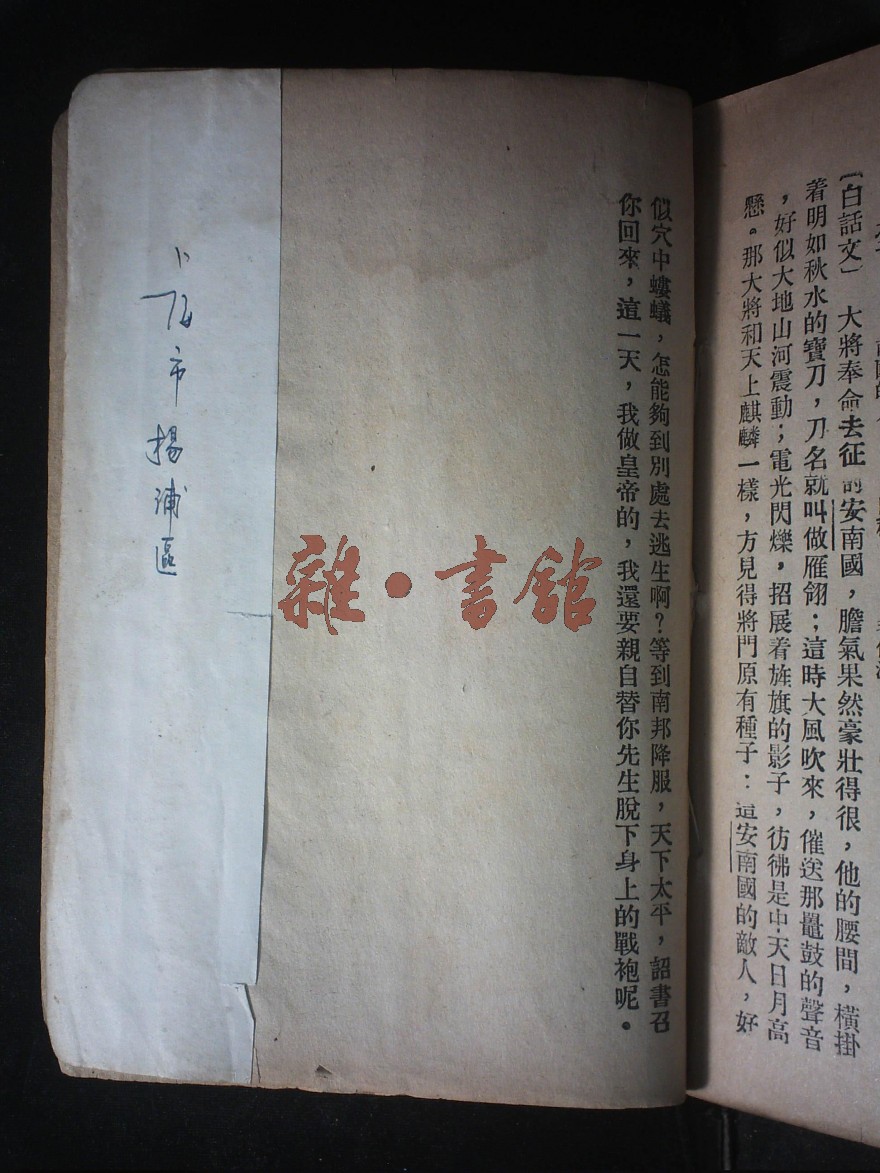 〔白話文〕　大將奉命去征 安南國，膽氣果然豪壯得很，他的腰間，橫掛
着明如秋水的寶刀，刀名就叫做雁翎；這時大風吹來，催送那鼉鼓的聲音
，好似大地山河震動；電光閃爍，招展着旌旗的影子，彷彿是中天日月高
懸。那大將和天上麒麟一樣，方見得將門原有種子：這安南國的敵人，好
似穴中螻蟻，怎能夠到別處去逃生啊？等到南邦降服，天下太平，詔書召
你回來，這一天，我做皇帝的，我還要親自替你先生脫下身上的戰袍呢。
雜·書館
市楊浦區